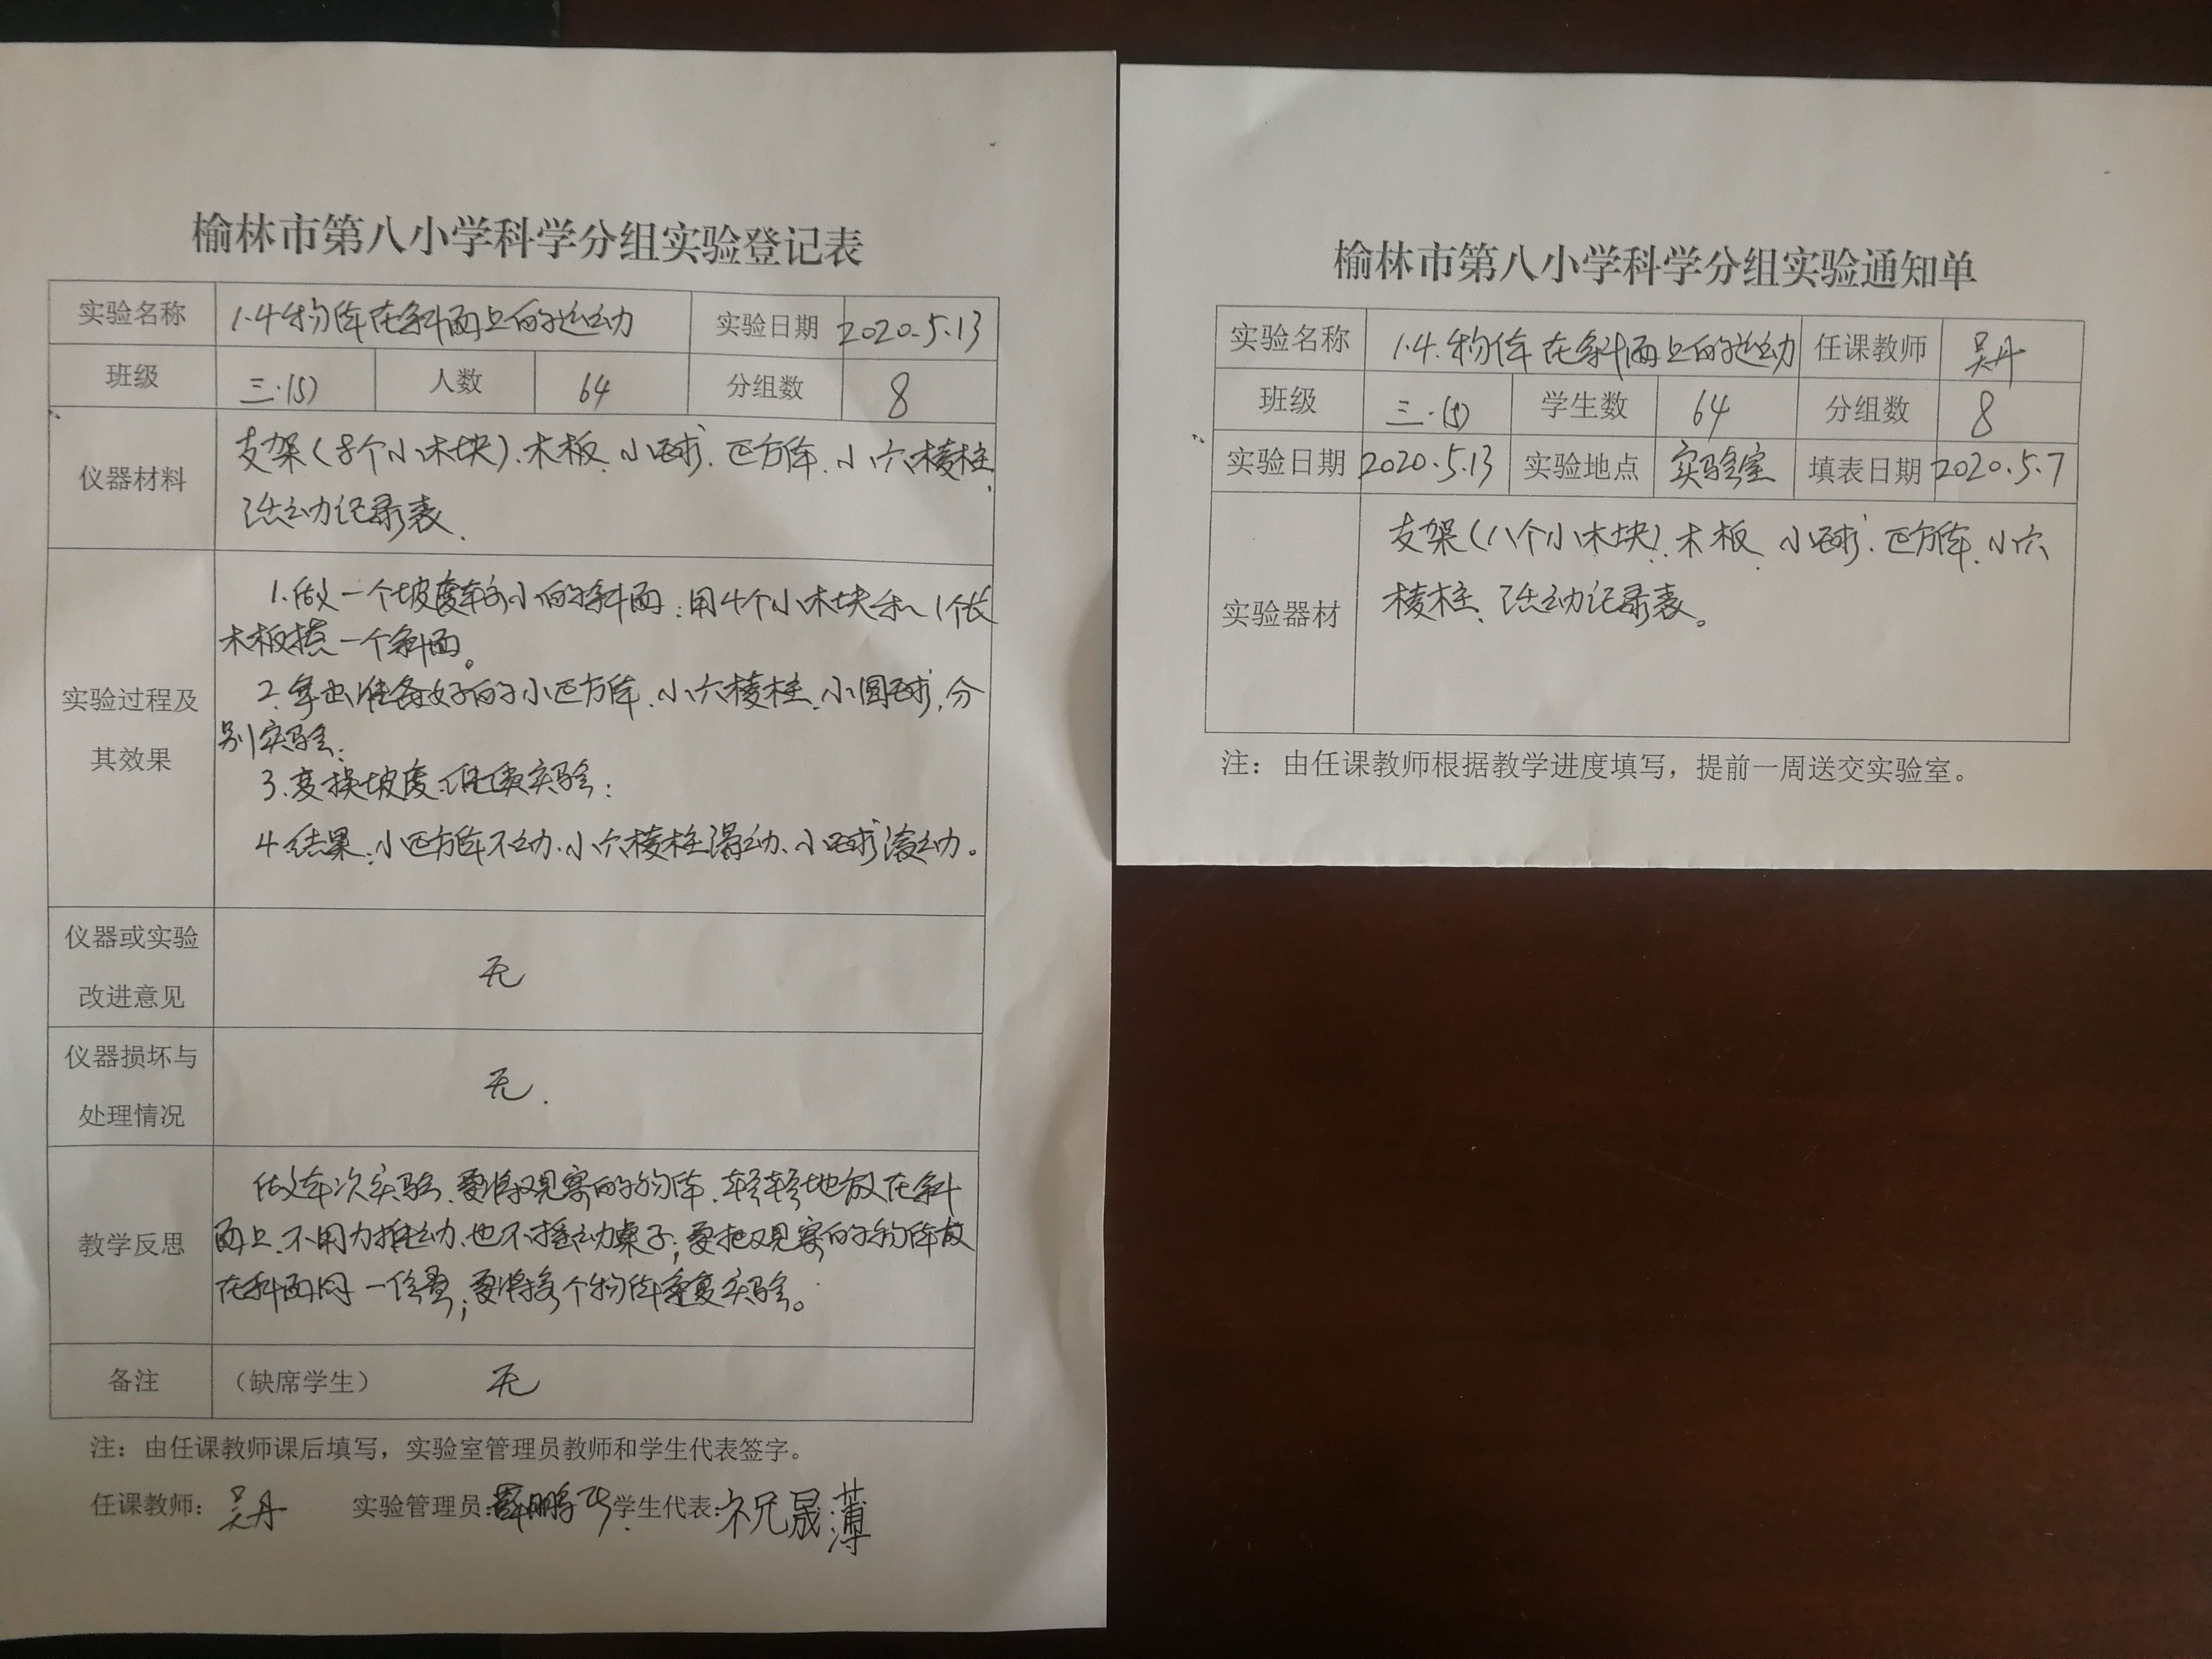 榆林市第八小学科学分组实验登记表
实验名称 1.4物体在斜面上的运动 实验日期 2020.5.13
班级 三.(5) 人数 64 分组数 8
仪器材料
支架(8个小木块)、木板、小球、正方体、小六棱柱、
活动记录表.
实验过程及
其效果
1.做一个坡度较小的斜面:用4个小木块和1个长
木板搭一个斜面。
2.拿出准备好的小正方体、小六棱柱、小圆球,分
别实验;
3.变换坡度,继续做实验:
4.结果:小正方体不动、小六棱柱滑动、小球滚动。
仪器或实验
改进意见
无
仪器损坏与
处理情况
无.
教学反思
做本次实验,要将观察的物体,轻轻地放在斜
面上,不用力推动、也不摇动桌子;要把观察的物体放
在斜面同一位置;要将每个物体重复实验。
备注 (缺席学生) 无
注:由任课教师课后填写,实验室管理员教师和学生代表签字。
任课教师: 吴丹 实验管理员: 学生代表: 祝晟薄
榆林市第八小学科学分组实验通知单
实验名称 1.4.物体在斜面上的运动 任课教师 吴丹
班级 三.(5) 学生数 64 分组数 8
实验日期 2020.5.13 实验地点 实验室 填表日期 2020.5.7
实验器材
支架(八个小木块)、木板、小球、正方体、小六
棱柱、活动记录表。
注:由任课教师根据教学进度填写,提前一周送交实验室。